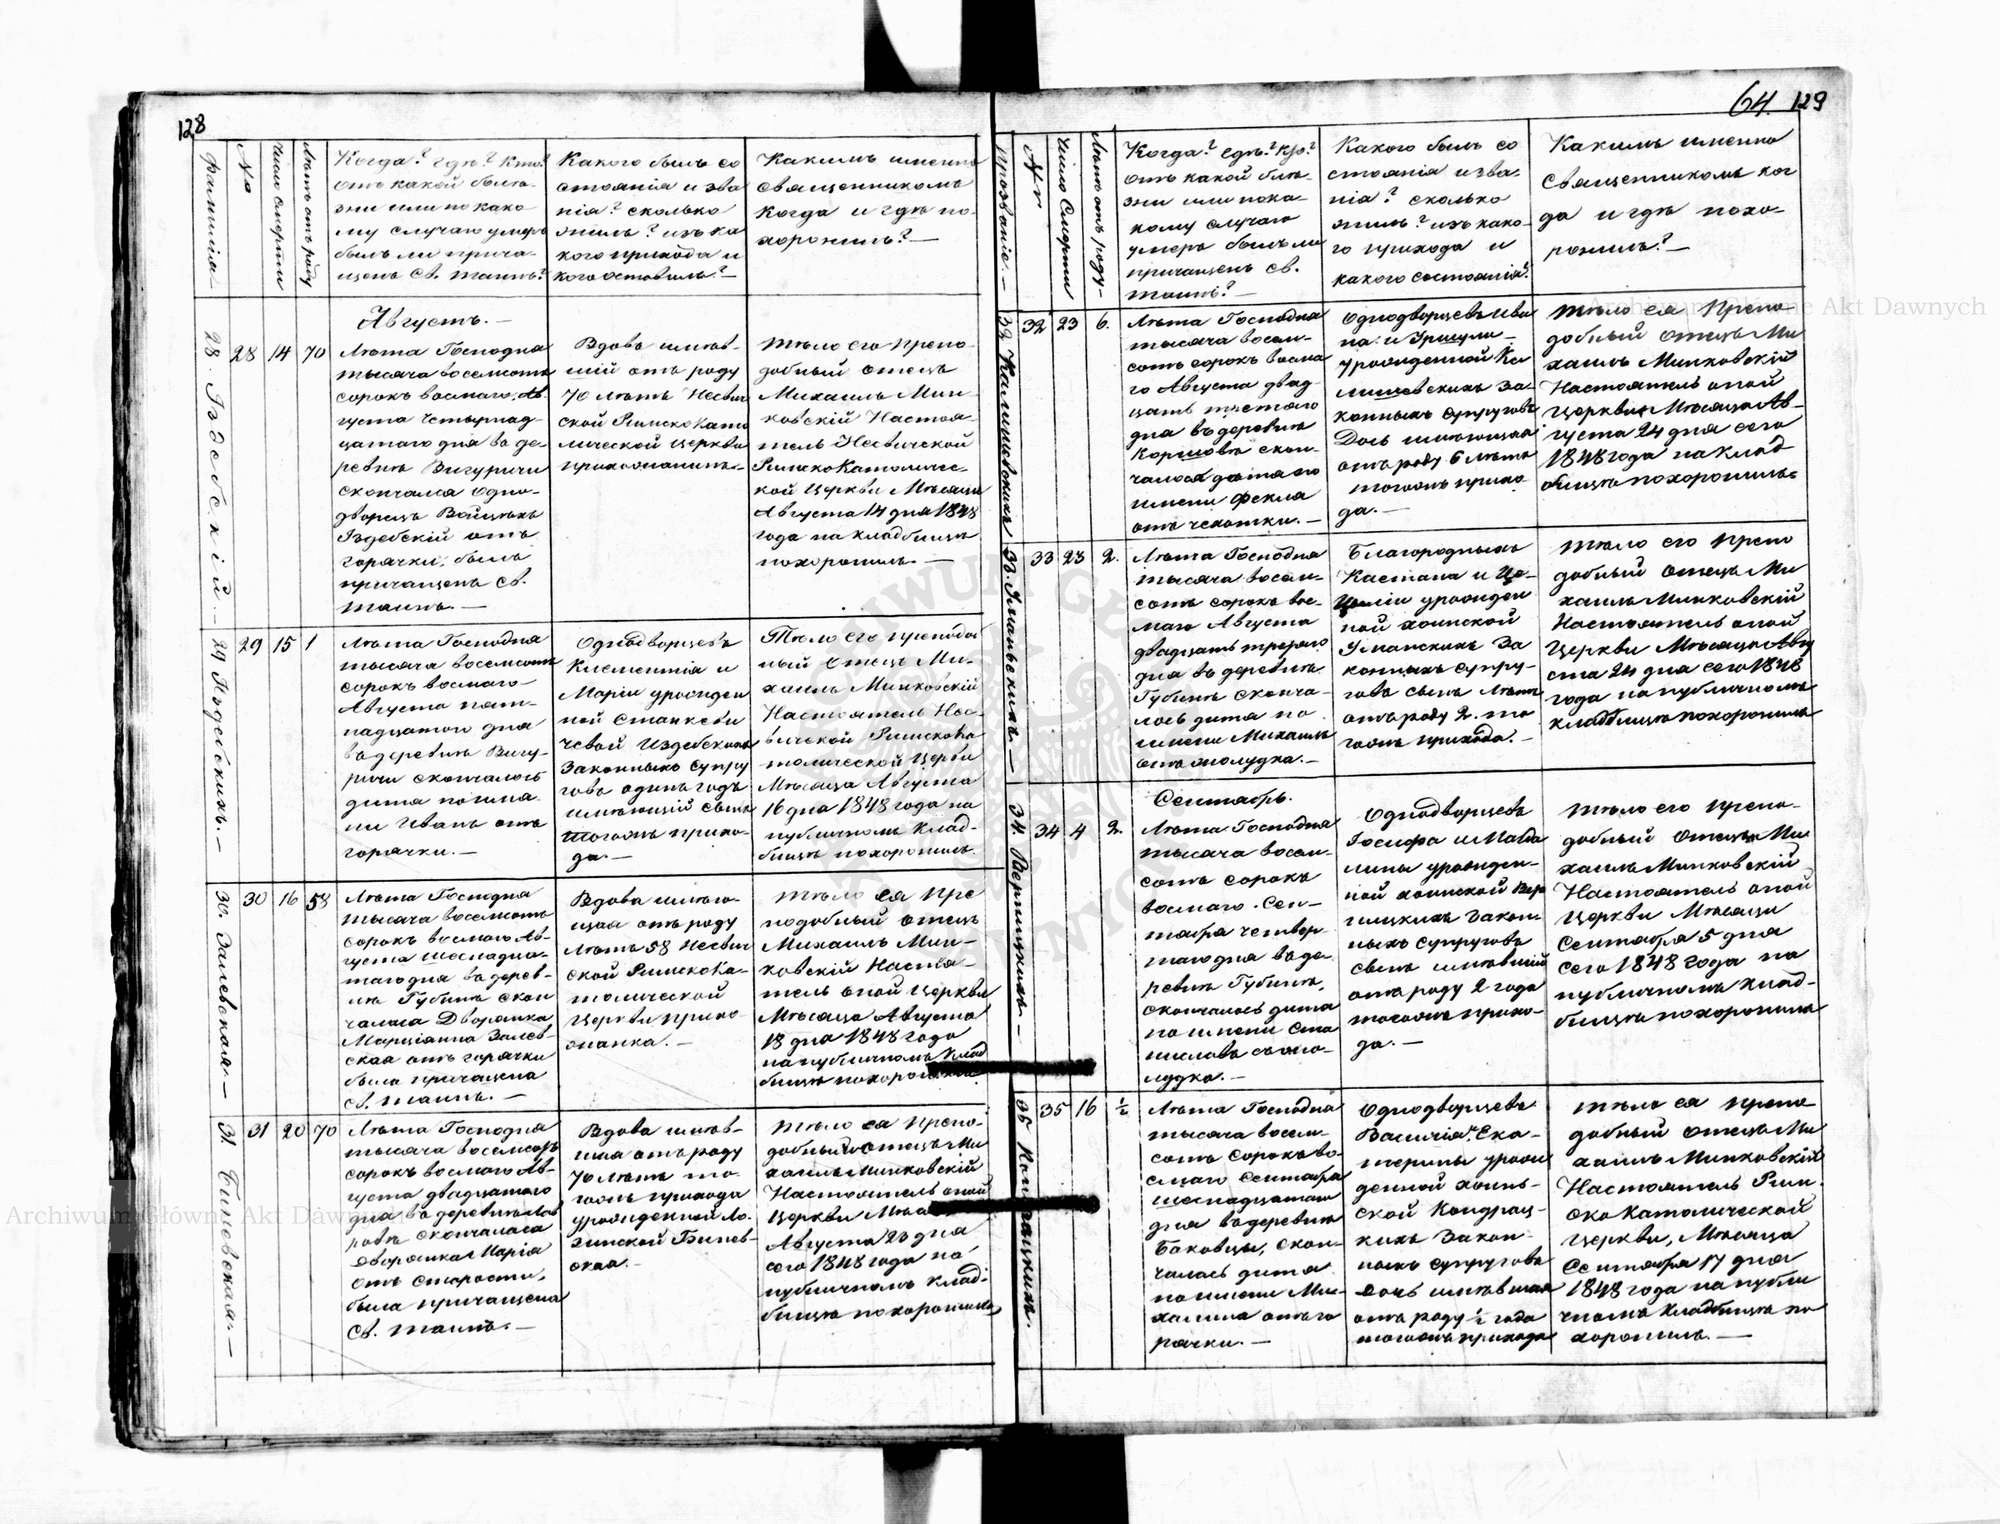 128
Фамилія
No
Число смерти
Лѣтъ отъ роду
Когда? гдѣ? Кто?
отъ какой болѣ-
зни или по како
му случаю умеръ
былъ ли прича-
щенъ Св. таинъ?
Какого былъ со
стоянія и зва
нія? сколько
жилъ? изъ ка
кого прихода и
кого оставилъ?—
Какимъ именно
священникомъ
когда и гдѣ по-
хороненъ?—
Августъ.—
28
14
70
Лѣта Господня
тысяча восемсотъ
сорокъ восмаго, Ав-
густа четырнад-
цатаго дня въ де-
ревнѣ Вигуричи
скончался одно-
дворецъ Войцѣхъ
Гѣдебскій отъ
горячки, былъ
причащенъ Св.
таинъ.—
Вдовъ имѣв-
шій отъ роду
70 лѣтъ Несвич
ской Римскокато
лической церкви
прихожанинъ.-
тѣло его препо-
добный отецъ
Михаилъ Мин-
ковскій Настоя-
тель Несвической
РимскоКатоличес-
кой Церкви Мѣсяца
Августа 14 дня 1848
года на кладбищѣ
похоронилъ.—
29
15
1
Лѣта Господня
тысяча восемсотъ
сорокъ восмаго-
Августа пят-
надцатого дня
въ деревнѣ Вигу-
ричи скончалось
дитя по име-
ни Иванъ отъ
горячки.—
Однодворцевъ
Климентія и
Маріи урожден
ной Станкеви
чевой Издебскихъ
Законныхъ супру
говъ одинъ годъ
имѣющій сынъ
тогожъ прихо-
да.—
Тѣло его преподоб
ный Отецъ Ми-
хаилъ Минковскій
Настоятель Нес-
вичской Римскока
толической Церкви
Мѣсяца Августа
16 дня 1848 года на
публичномъ Клад-
бищѣ похоронилъ.
30. Залевская.—
30
16
58
Лѣта Господня
тысяча восемсотъ
сорокъ восмаго Ав-
густа шеснадца-
таго дня въ дерев-
нѣ Губинѣ скон
чалась Дворянка
Марціанна Залев-
ская отъ горячки
была причащена
Св. таинъ.—
Вдова имѣю-
щая отъ роду
Лѣтъ 58 Несвич
ской РимскоКа-
толической
Церкви прихо-
жанка.—
тѣло ея пре
подобный отецъ
Михаилъ Мин-
ковскій Настоя-
тель оной Церкви
Мѣсяца Августа
18 дня 1848 года
на публичномъ Клад
бищѣ похоронилъ
31
20
70
Лѣта Господня
тысяча восемсотъ
сорокъ восмаго Ав-
густа двадцатого
дня въ деревнѣ
скончалась
дворянка Марія
отъ старости,
была причащена
Св. таинъ.—
Вдова имѣв-
шая отъ роду
70 лѣтъ то-
гожъ прихода
урожденной
ская.—
тѣло ея препо-
добный отецъ Ми
хаилъ Минковскій
Настоятель оной
Церкви
Августа 23 дня
сего 1848 года на
публичномъ клад-
бищѣ похоронилъ
64. 129
Прозваніе.—
Число Смерти
Лѣтъ отъ роду-
Когда? гдѣ? Кто?
отъ какой болѣ-
зни или по ка-
кому случаю
умеръ былъ ли
причащенъ Св.
таинъ?—
Какого былъ со
стоянія и зва-
нія? сколько
жилъ? изъ како-
го прихода и
какого состоянія?
Какимъ именно
Священникомъ ког
да и гдѣ похо-
роненъ?—
32
23
6.
Лѣта Господня
тысяча восем-
сотъ сорокъ восма
го Августа двад-
цать третяго
дня въ деревнѣ
скон-
чалось дитя по
имени Фекла
отъ чехотки.—
Однодворцевъ Ива
на и Уршули-
урожденной
За-
конныхъ супруговъ
Дочь имѣющая
отъ роду 6 лѣтъ
тогожъ прихо
да.—
тѣло ея Препо-
добный отецъ Ми
хаилъ Минковскій
Настоятель оной
Церкви Мѣсяца Ав-
густа 24 дня сего
1848 года на Клад
бищѣ похоронилъ
33
23
2.
Лѣта Господня
тысяча восем-
сотъ сорокъ вос-
маго Августа
двадцать третяго
дня въ деревнѣ
Губинѣ сконча-
лось дитя по
имени Михаилъ
отъ жолудка.—
Благородныхъ
Каетана и Це-
циліи урожден
ной Хоинской
За
конныхъ супру-
говъ сынъ лѣтъ
отъ роду 2. то
гожъ прихода.—
тѣло его Препо
добный Отецъ Ми
хаилъ Минковскій
Настоятель оной
Церкви Мѣсяца Авгу
ста 24 дня сего 1848
года на публичномъ
кладбищѣ похоронилъ
Сентябрь.
34
4
2.
Лѣта Господня
тысяча восем-
сотъ сорокъ
восмаго Сен-
тября четвер
таго дня въ де-
ревнѣ Губинѣ,
скончалось дитя
по имени Ста
ниславъ съ жо-
лудка.—
Однодворцевъ
Іосифа и Магда
лины урожден-
ной Хоинской Вер
ницкихъ Закон
ныхъ супруговъ
сынъ имѣвшій
отъ роду 2 года
тогожъ прихо-
да.—
тѣло его препо-
добный отецъ Ми
хаилъ Минковскій
Настоятель оной
Церкви Мѣсяца
Сентября 5 дня
сего 1848 года на
публичномъ клад-
бищѣ похоронилъ
35
16
½
Лѣта Господня
тысяча восем-
сотъ сорокъ во-
смаго Сентября
шеснадцатаго
дня въ деревнѣ
Баковцы, скон-
чалась дитя
по имени Ми-
халина отъ го
рячки.—
Однодворцевъ
Василія и Ека-
терины урож
денной Хоинь-
ской Кондрац-
кихъ Закон-
ныхъ супруговъ
дочь имѣвшая
отъ роду ½ года
тогожъ прихода
тѣло ея препо
добный отецъ Ми
хаилъ Минковскій
Настоятель Рим-
ско Католической
Церкви, Мѣсяца
Сентября 17 дня
1848 года на публи
чномъ Кладбищѣ по
хоронилъ.—
Archiwum Główne Akt Dawnych
Archiwum Główne Akt Dawnych